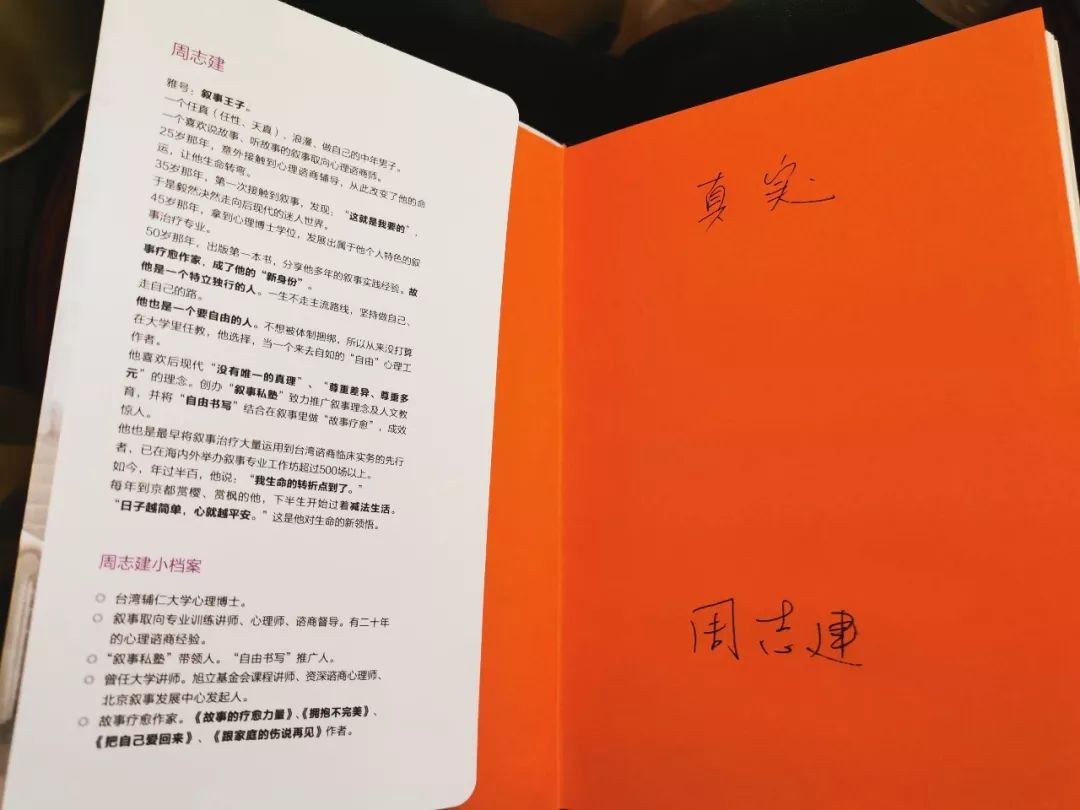 周志建
雅号：叙事王子。
一个任真（任性、天真）、浪漫、做自己的中年男子。
一个喜欢说故事、听故事的叙事取向心理谘商师。
25岁那年，意外接触到心理谘商辅导，从此改变了他的命
运，让他生命转弯。
35岁那年，第一次接触到叙事，发现：“这就是我要的”，
于是毅然决然走向后现代的迷人世界。
45岁那年，拿到心理博士学位，发展出属于他个人特色的叙
事治疗专业。
50岁那年，出版第一本书，分享他多年的叙事实践经验。故
事疗愈作家，成了他的“新身份”。
他是一个特立独行的人。一生不走主流路线，坚持做自己、
走自己的路。
他也是一个要自由的人。不想被体制捆绑，所以从来没打算
在大学里任教，他选择，当一个来去自如的“自由”心理工
作者。
他喜欢后现代“没有唯一的真理”、“尊重差异、尊重多
元”的理念。创办“叙事私塾”致力推广叙事理念及人文教
育，并将“自由书写”结合在叙事里做“故事疗愈”，成效
惊人。
他也是最早将叙事治疗大量运用到台湾谘商临床实务的先行
者，已在海内外举办叙事专业工作坊超过500场以上。
如今，年过半百，他说：“我生命的转折点到了。”
每年到京都赏樱、赏枫的他，下半生开始过着减法生活。
“日子越简单，心就越平安。”这是他对生命的新领悟。
周志建小档案
台湾辅仁大学心理博士。
叙事取向专业训练讲师、心理师、谘商督导。有二十年
的心理谘商经验。
“叙事私塾”带领人。“自由书写”推广人。
曾任大学讲师。旭立基金会课程讲师、资深谘商心理师、
北京叙事发展中心发起人。
故事疗愈作家。《故事的疗愈力量》、《拥抱不完美》、
《把自己爱回来》、《跟家庭的伤说再见》作者。
真实
周志建